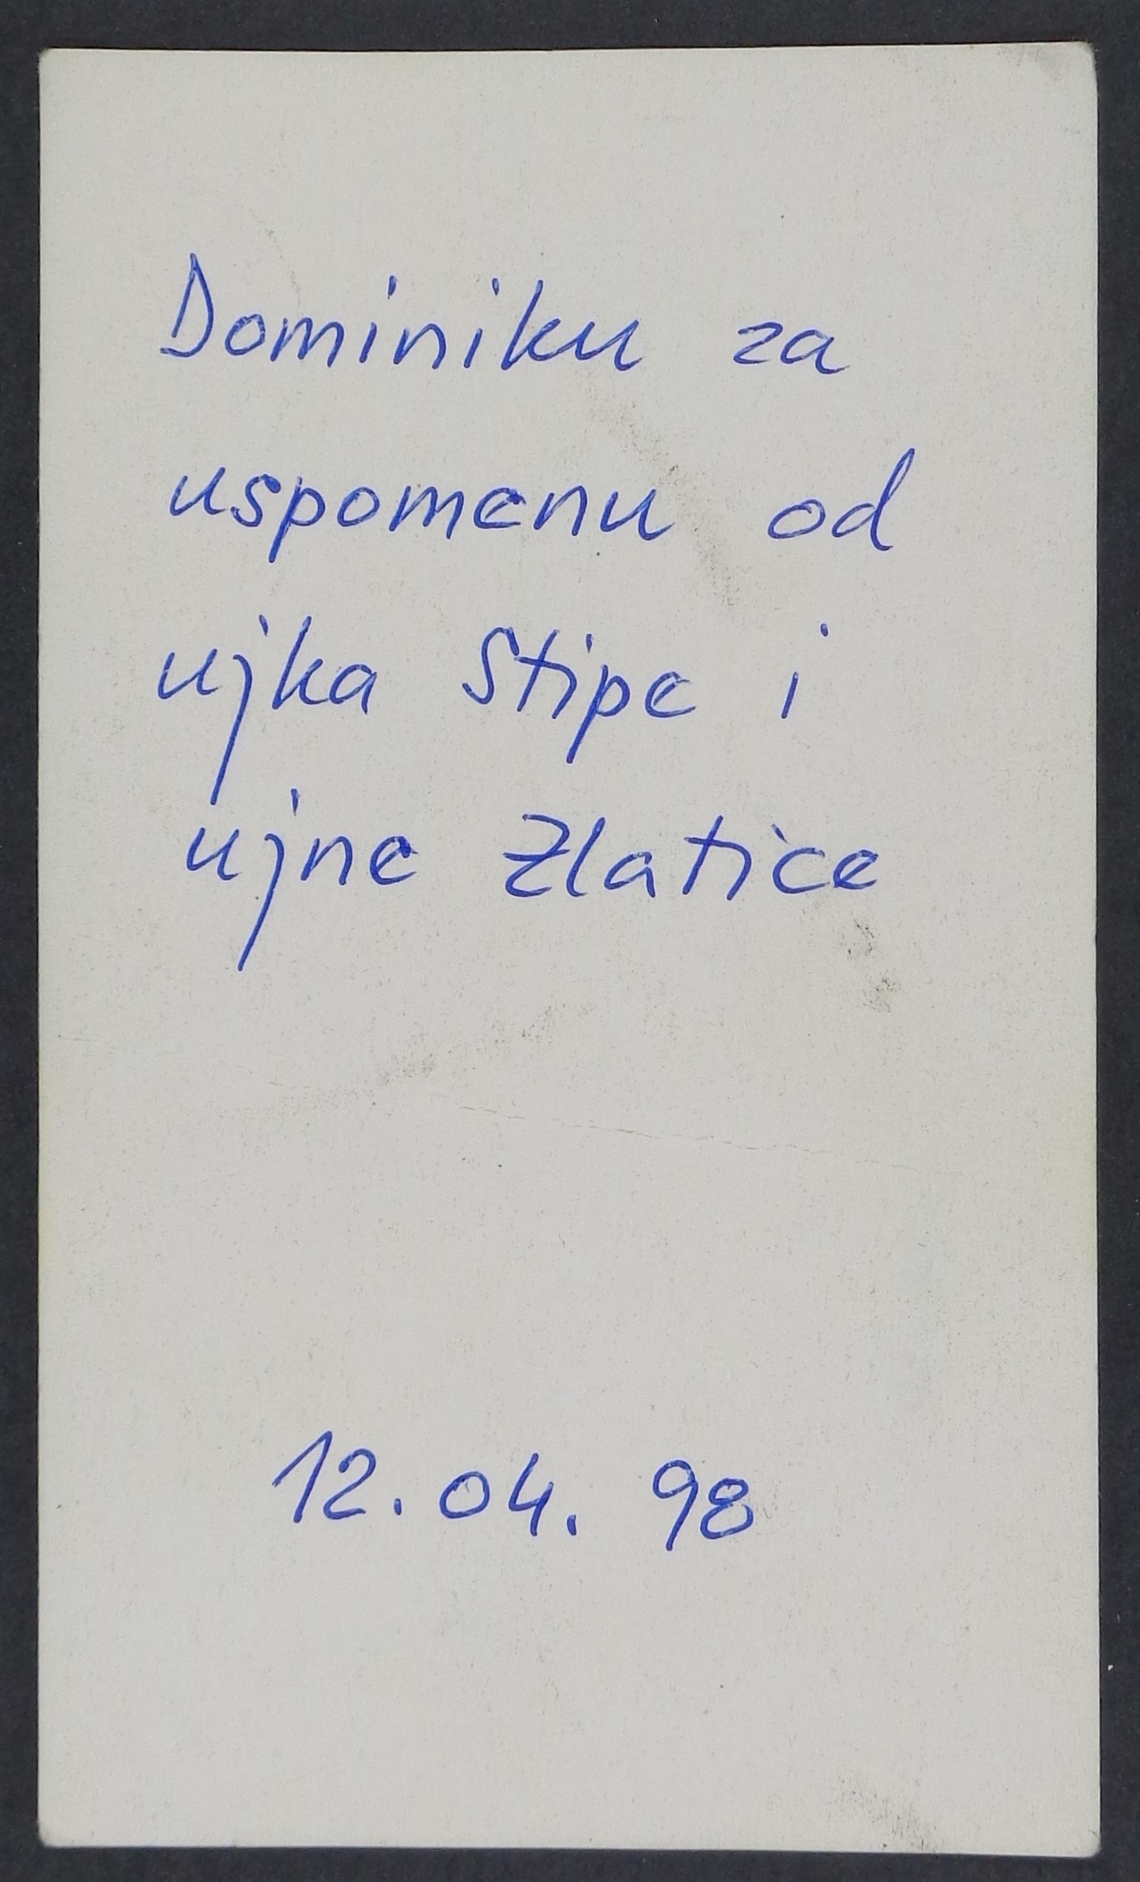 Dominiku za
uspomenu od
ujka Stipe i
ujne Zlatice
12.04.98